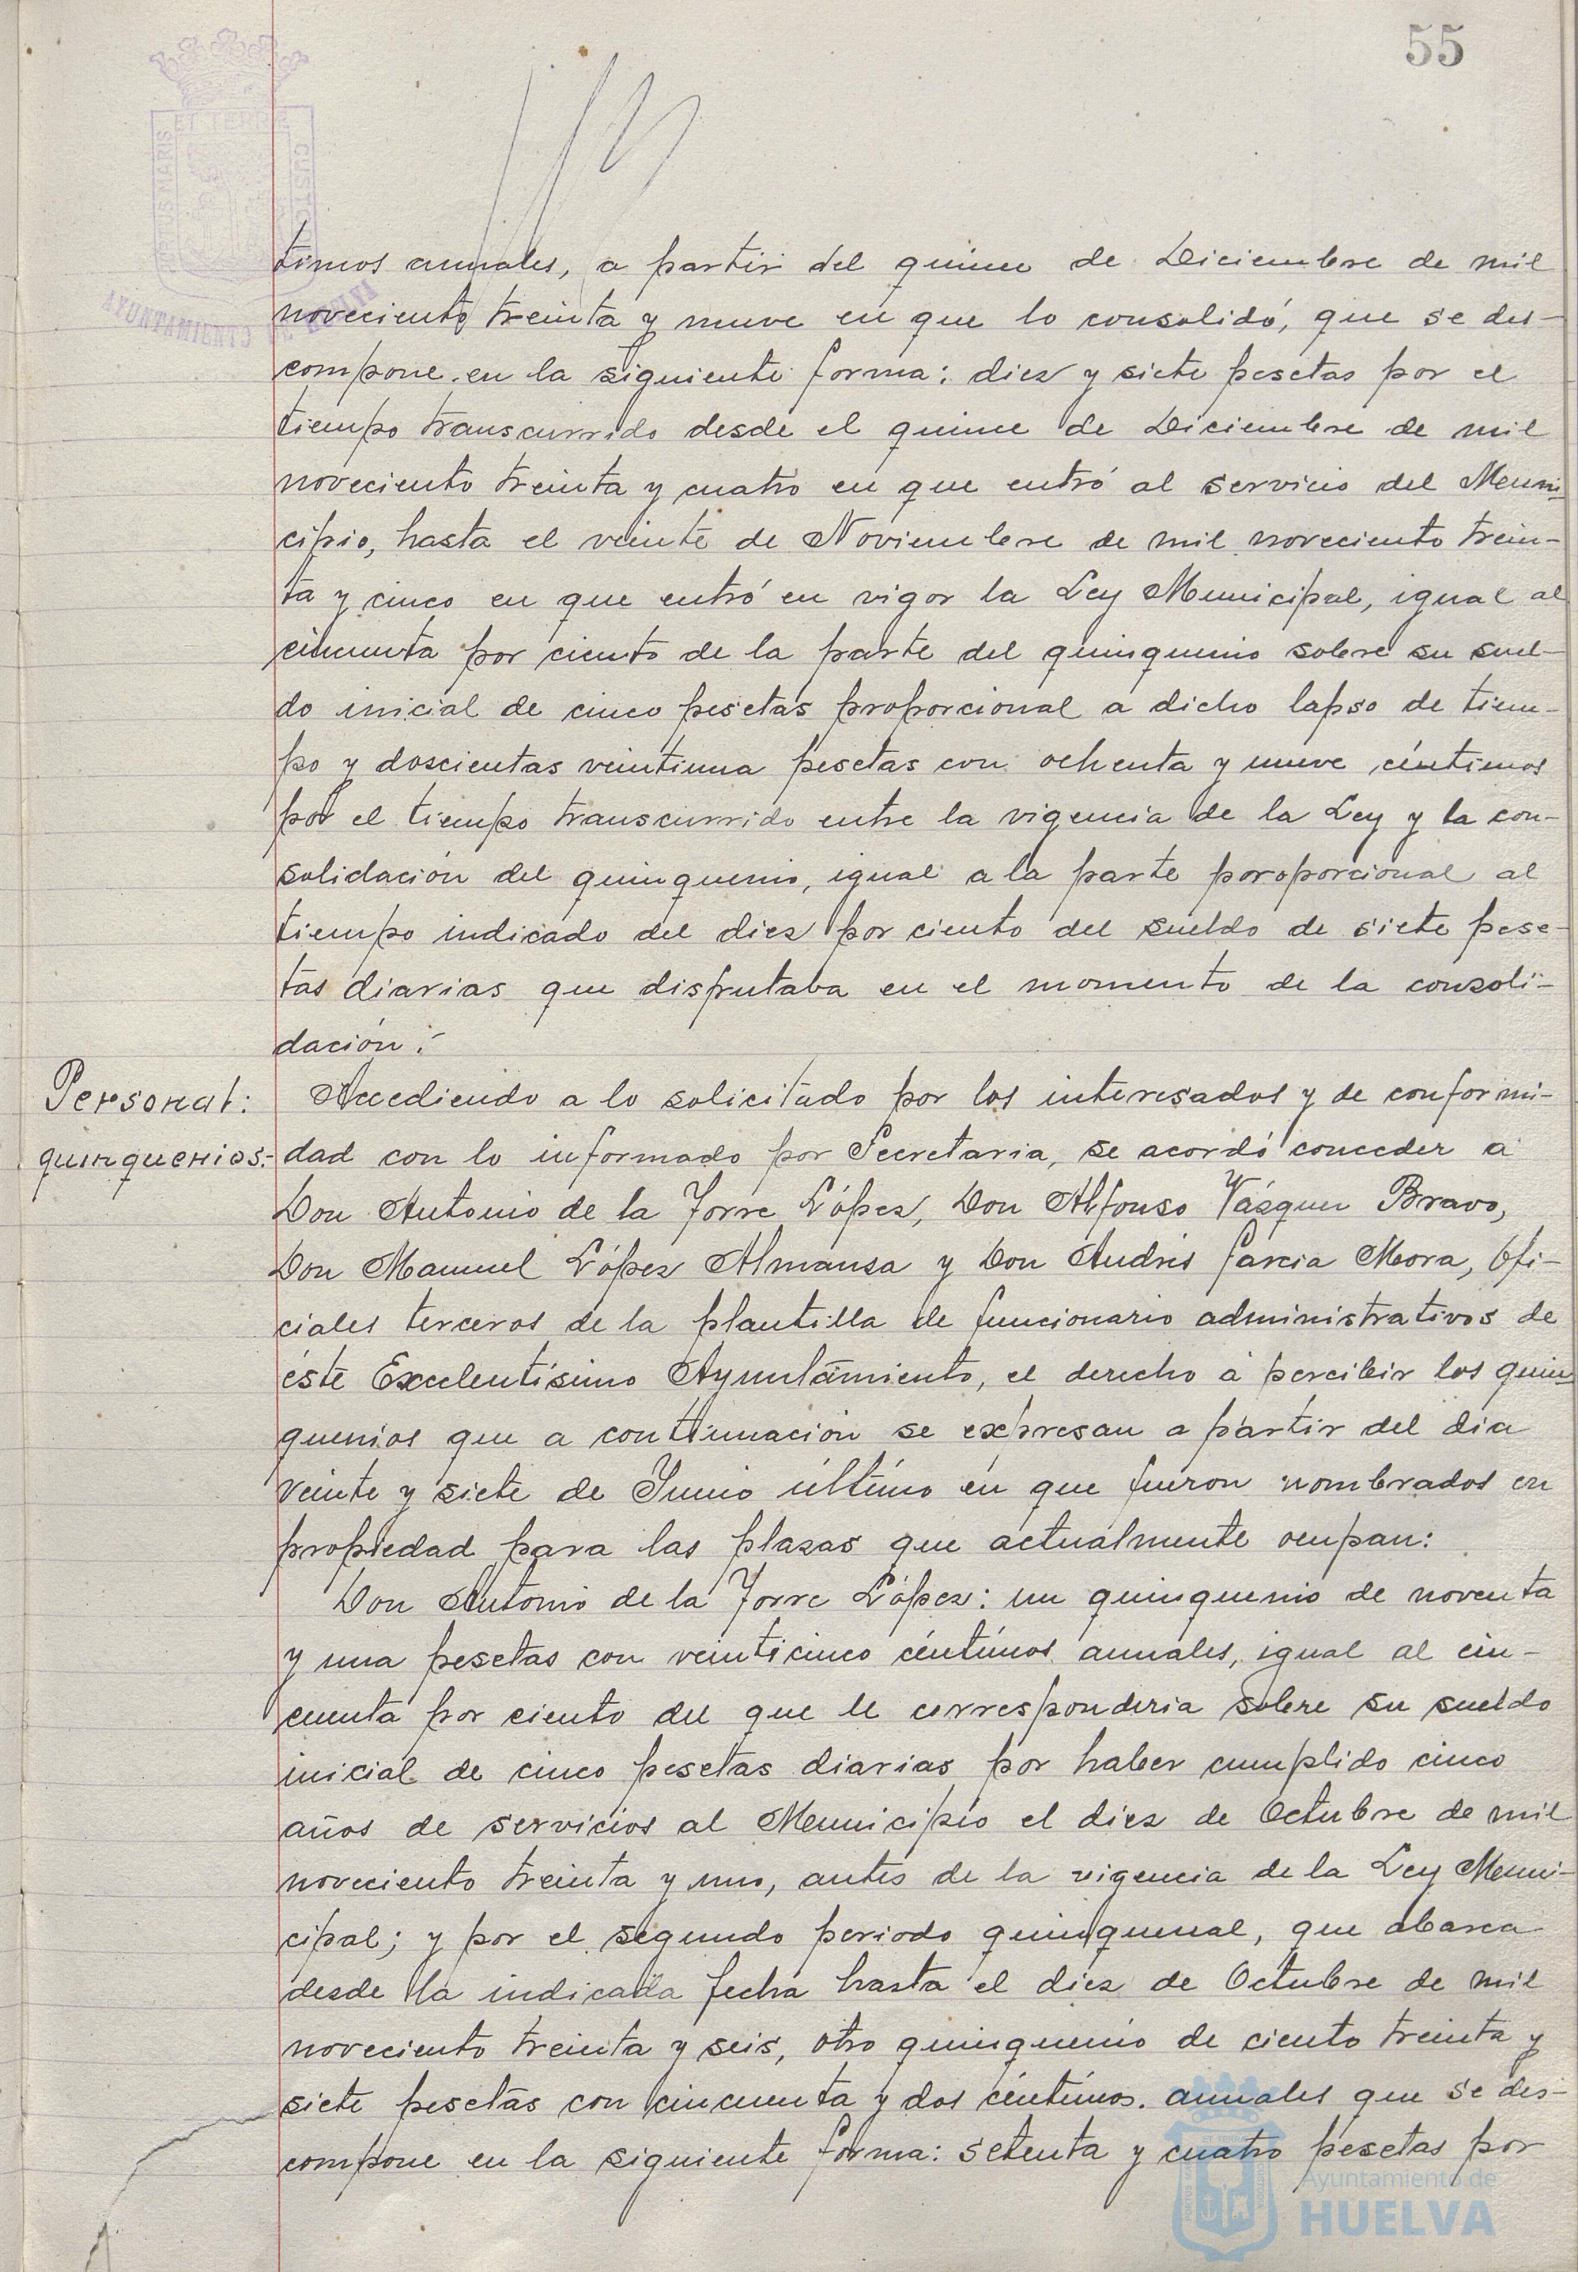 55
timos anuales, a partir del quince de Diciembre de mil
noveciento treinta y nueve en que lo consolidó, que se des-
compone en la siguiente forma: diez y siete pesetas por el
tiempo transcurrido desde el quince de Diciembre de mil
noveciento treinta y cuatro en que entró al servicio del Muni-
cipio, hasta el veinte de Noviembre de mil noveciento trein-
ta y cinco en que entró en vigor la Ley Municipal, igual al
cincuenta por ciento de la parte del quinquenio sobre su suel-
do inicial de cinco pesetas proporcional a dicho lapso de tiem-
po y doscientas veintiuna pesetas con ochenta y nueve céntimos
por el tiempo transcurrido entre la vigencia de la Ley y la con-
solidación del quinquenio, igual a la parte poroporcional al
tiempo indicado del diez por ciento del sueldo de siete pese-
tas diarias que disfrutaba en el momento de la consoli-
dación.-
Personal:
quinquenios.-
Accediendo a lo solicitado por los interesados y de conformi-
dad con lo informado por Secretaria, se acordó conceder a
Don Antonio de la Torre López, Don Alfonso Vázquez Bravo,
Don Manuel López Almansa y Don Andrés Garcia Mora, Ofi-
ciales terceros de la plantilla de funcionario administrativos de
éste Excelentísimo Ayuntamiento, el derecho a percibir los quin-
quenios que a continuación se expresan a partir del dia
veinte y siete de Junio último en que fueron nombrados en
propiedad para las plazas que actualmente ocupan:
Don Antonio de la Torre López: un quinquenio de noventa
y una pesetas con veinticinco céntimos anuales, igual al cin-
cuenta por ciento del que le corresponderia sobre su sueldo
inicial de cinco pesetas diarias por haber cumplido cinco
años de servicios al Municipio el diez de Octubre de mil
noveciento treinta y uno, antes de la vigencia de la Ley Muni-
cipal; y por el segundo periodo quinquenal, que abarca
desde la indicada fecha hasta el diez de Octubre de mil
noveciento treinta y seis, otro quinquenio de ciento treinta y
siete pesetas con cincuenta y dos céntimos anuales que se des-
compone en la siguiente forma: setenta y cuatro pesetas por
Ayuntamiento de
HUELVA